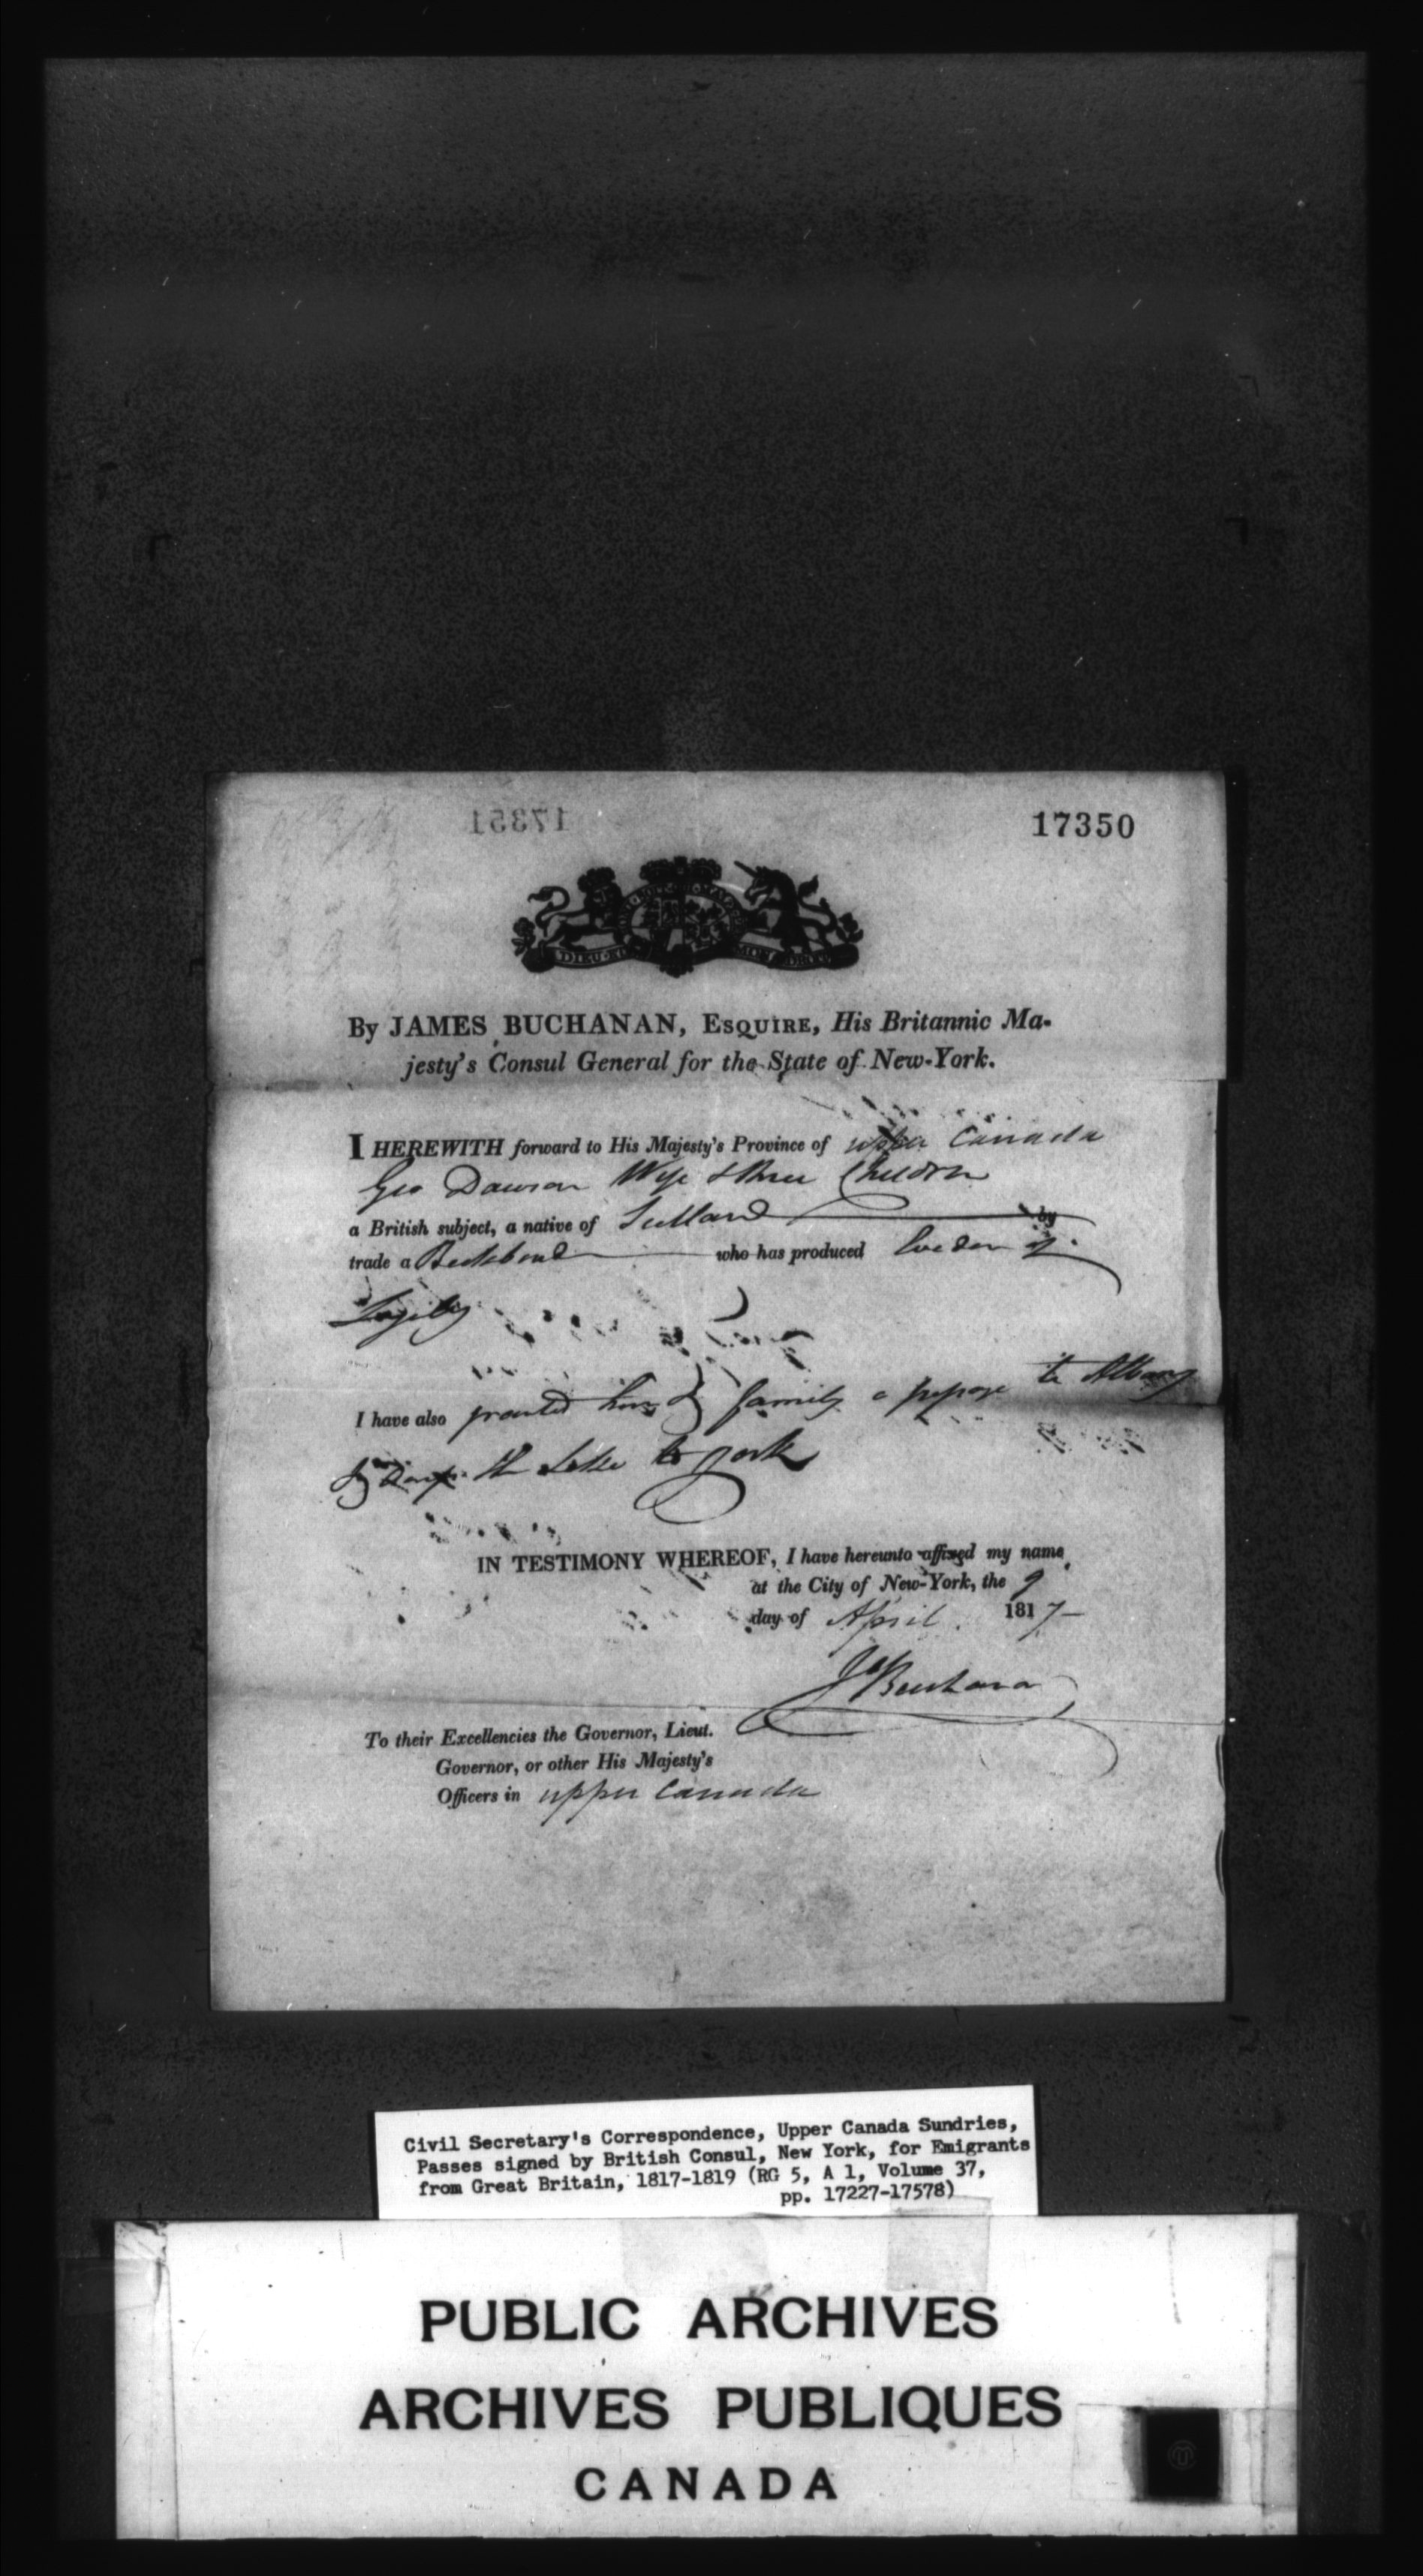 17351
17350
DIEU ET MON DROIT
By JAMES BUCHANAN, ESQUIRE, His Britannic Ma-
jesty's Consul General for the State of New-York.
I HEREWITH forward to His Majesty's Province of upper Canada
Geo Dawson Wife & three Children
a British subject, a native of by
trade a who has produced of
I have also granted him & family a to Albany
& the Lake to york
IN TESTIMONY WHEREOF, I have hereunto affixed my name
at the City of New-York, the 9
day of April 1817
Js Buchanan
To their Excellencies the Governor, Lieut.
Governor, or other His Majesty's
Officers in upper Canada
Civil Secretary's Correspondence, Upper Canada Sundries,
Passes signed by British Consul, New York, for Emigrants
from Great Britain, 1817-1819 (RG 5, A 1, Volume 37,
pp. 17227-17578)
PUBLIC ARCHIVES
ARCHIVES PUBLIQUES
CANADA